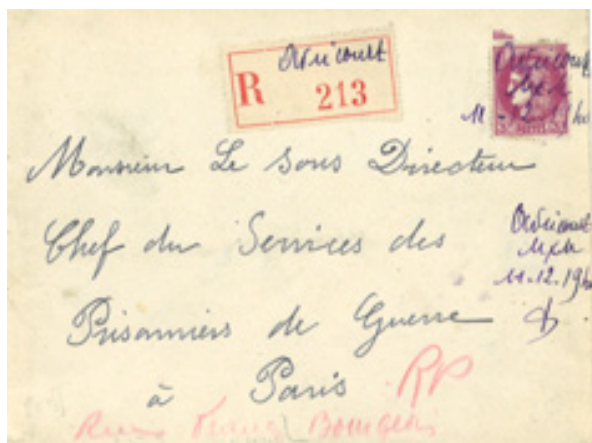 Avricourt
R 213
Avricourt
MxM
11-12-1940
Monsieur Le Sous Directeur
Chef du Services des
Avricourt
MxM
11.12.1940
Prisonniers de Guerre
à Paris
RP
Bourgeois